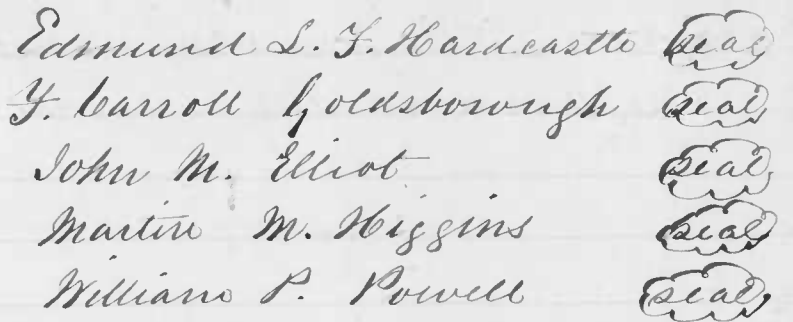 Edmund L. F. Hardcastle seal
F. Carroll Goldsborough seal
John M. Elliot seal
Martin M. Higgins seal
William P. Powell seal